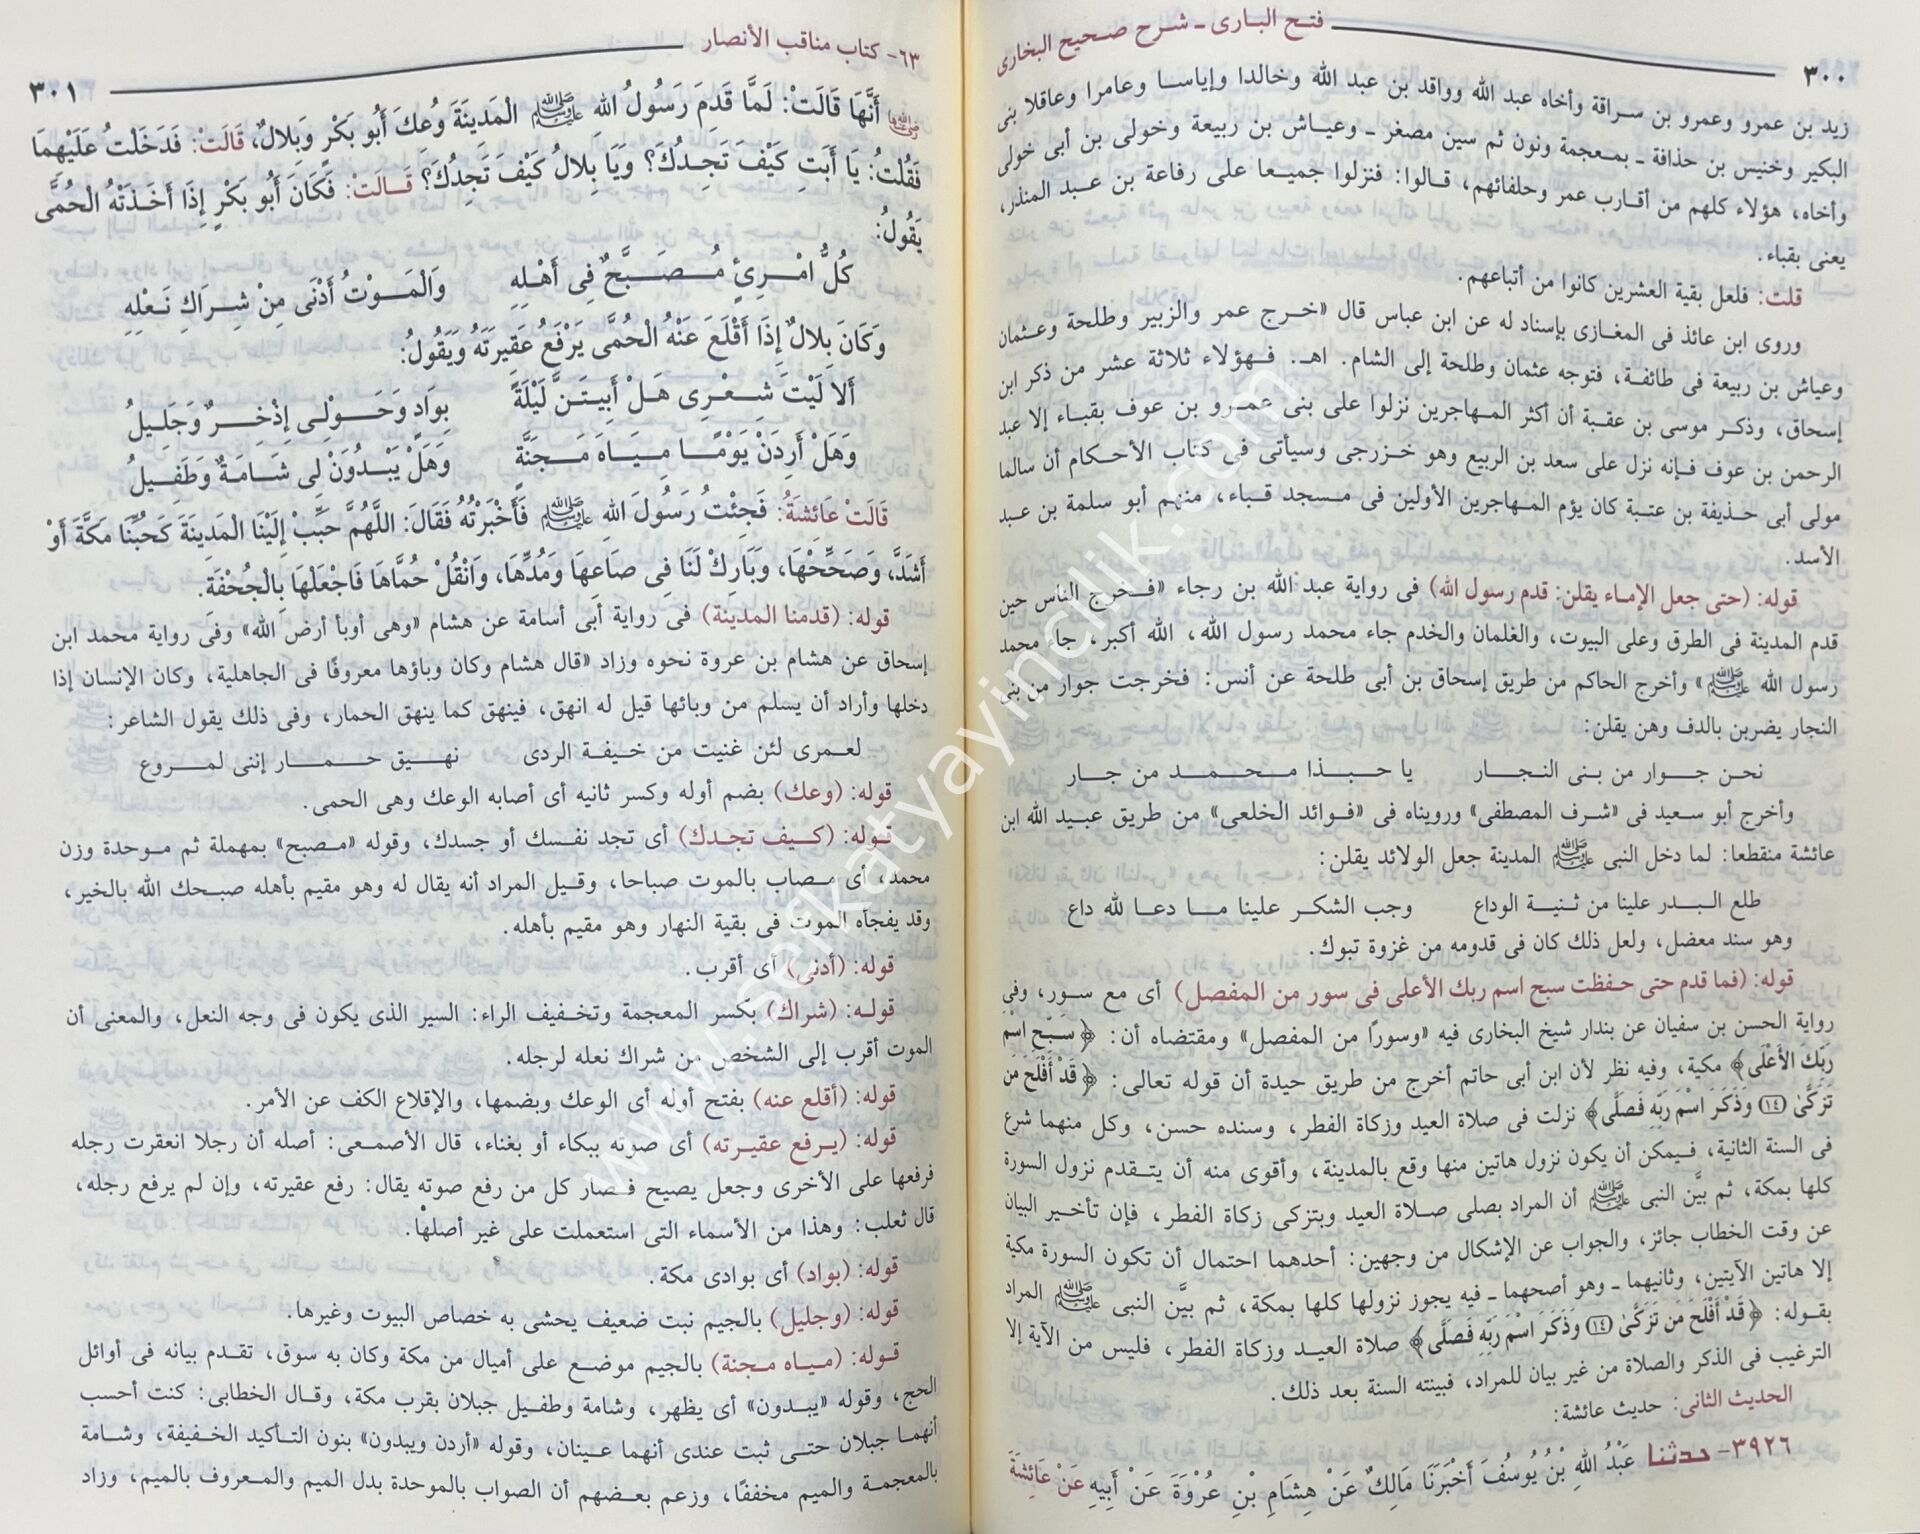 فتح البارى ـ شرح صحيح البخارى
٣٠٠
زيد بن عمرو وعمرو بن سراقة وأخاه عبد الله وواقد بن عبد الله وخالدا وإياسا وعامرا وعاقلا بنى
البكير وخنيس بن حذافة ـ بمعجمة ونون ثم سين مصغر ـ وعياش بن ربيعة وخولى بن أبى خولى
وأخاه، هؤلاء كلهم من أقارب عمر وحلفائهم، قالوا: فنزلوا جميعا على رفاعة بن عبد المنذر،
يعنى بقباء.
قلت: فلعل بقية العشرين كانوا من أتباعهم.
وروى ابن عائذ فى المغازى بإسناد له عن ابن عباس قال «خرج عمر والزبير وطلحة وعثمان
وعياش بن ربيعة فى طائفة، فتوجه عثمان وطلحة إلى الشام. اهـ. فهؤلاء ثلاثة عشر من ذكر ابن
إسحاق، وذكر موسى بن عقبة أن أكثر المهاجرين نزلوا على بنى عمرو بن عوف بقباء إلا عبد
الرحمن بن عوف فإنه نزل على سعد بن الربيع وهو خزرجى وسيأتى فى كتاب الأحكام أن سالما
مولى أبى حذيفة بن عتبة كان يؤم المهاجرين الأولين فى مسجد قباء، منهم أبو سلمة بن عبد
الأسد.
قوله: (حتى جعل الإماء يقلن: قدم رسول الله) فى رواية عبد الله بن رجاء «فخرج الناس حين
قدم المدينة فى الطرق وعلى البيوت، والغلمان والخدم جاء محمد رسول الله، الله أكبر، جاء محمد
رسول الله ﷺ» وأخرج الحاكم من طريق إسحاق بن أبى طلحة عن أنس: فخرجت جوار من بنى
النجار يضربن بالدف وهن يقلن:
نحن جوار من بنى النجار يا حبذا محمد من جار
وأخرج أبو سعيد فى «شرف المصطفى» ورويناه فى «فوائد الخلعى» من طريق عبيد الله ابن
عائشة منقطعا: لما دخل النبى ﷺ المدينة جعل الولائد يقلن:
طلع البدر علينا من ثنية الوداع وجب الشكر علينا ما دعا لله داع
وهو سند معضل، ولعل ذلك كان فى قدومه من غزوة تبوك.
قوله: (فما قدم حتى حفظت سبح اسم ربك الأعلى فى سور من المفصل) أى مع سور، وفى
رواية الحسن بن سفيان عن بندار شيخ البخارى فيه «وسورًا من المفصل» ومقتضاه أن: ﴿سَبِّحِ اسْمَ
رَبِّكَ الأَعْلَى﴾ مكية، وفيه نظر لأن ابن أبى حاتم أخرج من طريق حيدة أن قوله تعالى: ﴿قَدْ أَفْلَحَ مَن
تَزَكَّىٰ (١٤) وَذَكَرَ اسْمَ رَبِّهِ فَصَلَّى﴾ نزلت فى صلاة العيد وزكاة الفطر، وسنده حسن، وكل منهما شرع
فى السنة الثانية، فيمكن أن يكون نزول هاتين منها وقع بالمدينة، وأقوى منه أن يتقدم نزول السورة
كلها بمكة، ثم بيَّن النبى ﷺ أن المراد بصلى صلاة العيد وبتزكى زكاة الفطر، فإن تأخير البيان
عن وقت الخطاب جائز، والجواب عن الإشكال من وجهين: أحدهما احتمال أن تكون السورة مكية
إلا هاتين الآيتين، وثانيهما ـ وهو أصحهما ـ فيه يجوز نزولها كلها بمكة، ثم بيَّن النبى ﷺ المراد
بقوله: ﴿قَدْ أَفْلَحَ مَن تَزَكَّىٰ (١٤) وَذَكَرَ اسْمَ رَبِّهِ فَصَلَّى﴾ صلاة العيد وزكاة الفطر، فليس من الآية إلا
الترغيب فى الذكر والصلاة من غير بيان للمراد، فبينته السنة بعد ذلك.
الحديث الثانى: حديث عائشة:
٣٩٢٦- حدثنا عَبْدُ اللهِ بْنُ يُوسُفَ أَخْبَرَنَا مَالِكٌ عَنْ هِشَامِ بْنِ عُرْوَةَ عَنْ أَبِيهِ عَنْ عَائِشَةَ
٦٣- كتاب مناقب الأنصار
٣٠١
رضي الله عنها أَنَّهَا قَالَتْ: لَمَّا قَدِمَ رَسُولُ اللهِ ﷺ الْمَدِينَةَ وُعِكَ أَبُو بَكْرٍ وَبِلَالٌ، قَالَتْ: فَدَخَلْتُ عَلَيْهِمَا
فَقُلْتُ: يَا أَبَتِ كَيْفَ تَجِدُكَ؟ وَيَا بِلالُ كَيْفَ تَجِدُكَ؟ قَالَتْ: فَكَانَ أَبُو بَكْرٍ إِذَا أَخَذَتْهُ الْحُمَّى
يَقُولُ:
كُلُّ امْرِئٍ مُصَبَّحٌ فِى أَهْلِهِ وَالْمَوْتُ أَدْنَى مِنْ شِرَاكِ نَعْلِهِ
وَكَانَ بِلَالٌ إِذَا أَقْلَعَ عَنْهُ الْحُمَّى يَرْفَعُ عَقِيرَتَهُ وَيَقُولُ:
أَلا لَيْتَ شِعْرِى هَلْ أَبِيتَنَّ لَيْلَةً بِوَادٍ وَحَوْلِى إِذْخِرٌ وَجَلِيلُ
وَهَلْ أَرِدَنْ يَوْمًا مِيَاهَ مَجَنَّةٍ وَهَلْ يَبْدُوَنْ لِى شَامَةٌ وَطَفِيلُ
قَالَتْ عَائِشَةُ: فَجِئْتُ رَسُولَ اللهِ ﷺ فَأَخْبَرْتُهُ فَقَالَ: اللَّهُمَّ حَبِّبْ إِلَيْنَا الْمَدِينَةَ كَحُبِّنَا مَكَّةَ أَوْ
أَشَدَّ، وَصَحِّحْهَا، وَبَارِكْ لَنَا فِى صَاعِهَا وَمُدِّهَا، وَانْقُلْ حُمَّاهَا فَاجْعَلْهَا بِالْجُحْفَةِ.
قوله: (قدمنا المدينة) فى رواية أبى أسامة عن هشام «وهى أوبأ أرض الله» وفى رواية محمد ابن
إسحاق عن هشام بن عروة نحوه وزاد «قال هشام وكان وباؤها معروفًا فى الجاهلية، وكان الإنسان إذا
دخلها وأراد أن يسلم من وبائها قيل له انهق، فينهق كما ينهق الحمار، وفى ذلك يقول الشاعر:
لعمرى لئن غنيت من خيفة الردى نهيق حمار إننى لمروع
قوله: (وعك) بضم أوله وكسر ثانيه أى أصابه الوعك وهى الحمى.
قوله: (كيف تجدك) أى تجد نفسك أو جسدك، وقوله «مصبح» بمهملة ثم موحدة وزن
محمد، أى مصاب بالموت صباحا، وقيل المراد أنه يقال له وهو مقيم بأهله صبحك الله بالخير،
وقد يفجأه الموت فى بقية النهار وهو مقيم بأهله.
قوله: (أدنى) أى أقرب.
قوله: (شراك) بكسر المعجمة وتخفيف الراء: السير الذى يكون فى وجه النعل، والمعنى أن
الموت أقرب إلى الشخص من شراك نعله لرجله.
قوله: (أقلع عنه) بفتح أوله أى الوعك وبضمها، والإقلاع الكف عن الأمر.
قوله: (يرفع عقيرته) أى صوته ببكاء أو بغناء، قال الأصمعى: أصله أن رجلا انعقرت رجله
فرفعها على الأخرى وجعل يصيح فصار كل من رفع صوته يقال: رفع عقيرته، وإن لم يرفع رجله،
قال ثعلب: وهذا من الأسماء التى استعملت على غير أصلها.
قوله: (بواد) أى بوادى مكة.
قوله: (وجليل) بالجيم نبت ضعيف يحشى به خصاص البيوت وغيرها.
قوله: (مياه مجنة) بالجيم موضع على أميال من مكة وكان به سوق، تقدم بيانه فى أوائل
الحج، وقوله «يبدون» أى يظهر، وشامة وطفيل جبلان بقرب مكة، وقال الخطابى: كنت أحسب
أنهما جبلان حتى ثبت عندى أنهما عينان، وقوله «أردن ويبدون» بنون التأكيد الخفيفة، وشامة
بالمعجمة والميم مخففًا، وزعم بعضهم أن الصواب بالموحدة بدل الميم والمعروف بالميم، وزاد
www.sarkatyayincilik.com